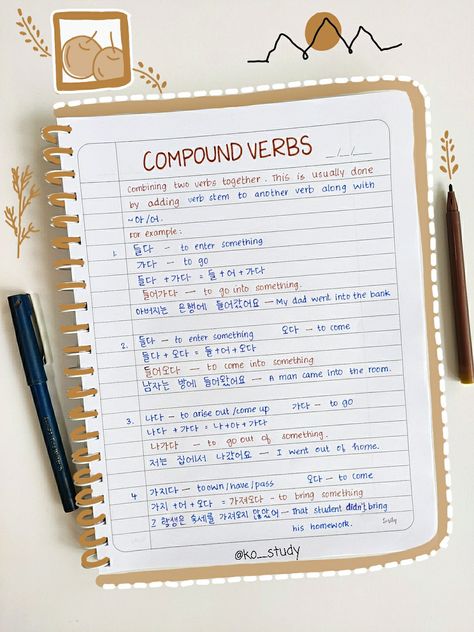 COMPOUND VERBS
Combining two verbs together. This is usually done
by adding verb stem to another verb along with
~아/어.
For example:
1. 들다 – to enter something
가다 – to go
들다 + 가다 = 들+어+가다
들어가다 – to go into something.
아버지는 은행에 들어갔어요 – My dad went into the bank
2. 들다 – to enter something 오다 – to come
들다 + 오다 = 들+어+오다
들어오다 – to come into something
남자는 방에 들어왔어요 – A man came into the room.
3. 나다 – to arise out/come up 가다 – to go
나다 + 가다 = 나+아+가다
나가다 – to go out of something.
저는 집에서 나갔어요 – I went out of home.
4. 가지다 – to own/have/pass 오다 – to come
가지+어+오다 = 가져오다 – to bring something
숙제를 가져오지 않았어 – That student didn't bring
his homework.
@ko__study